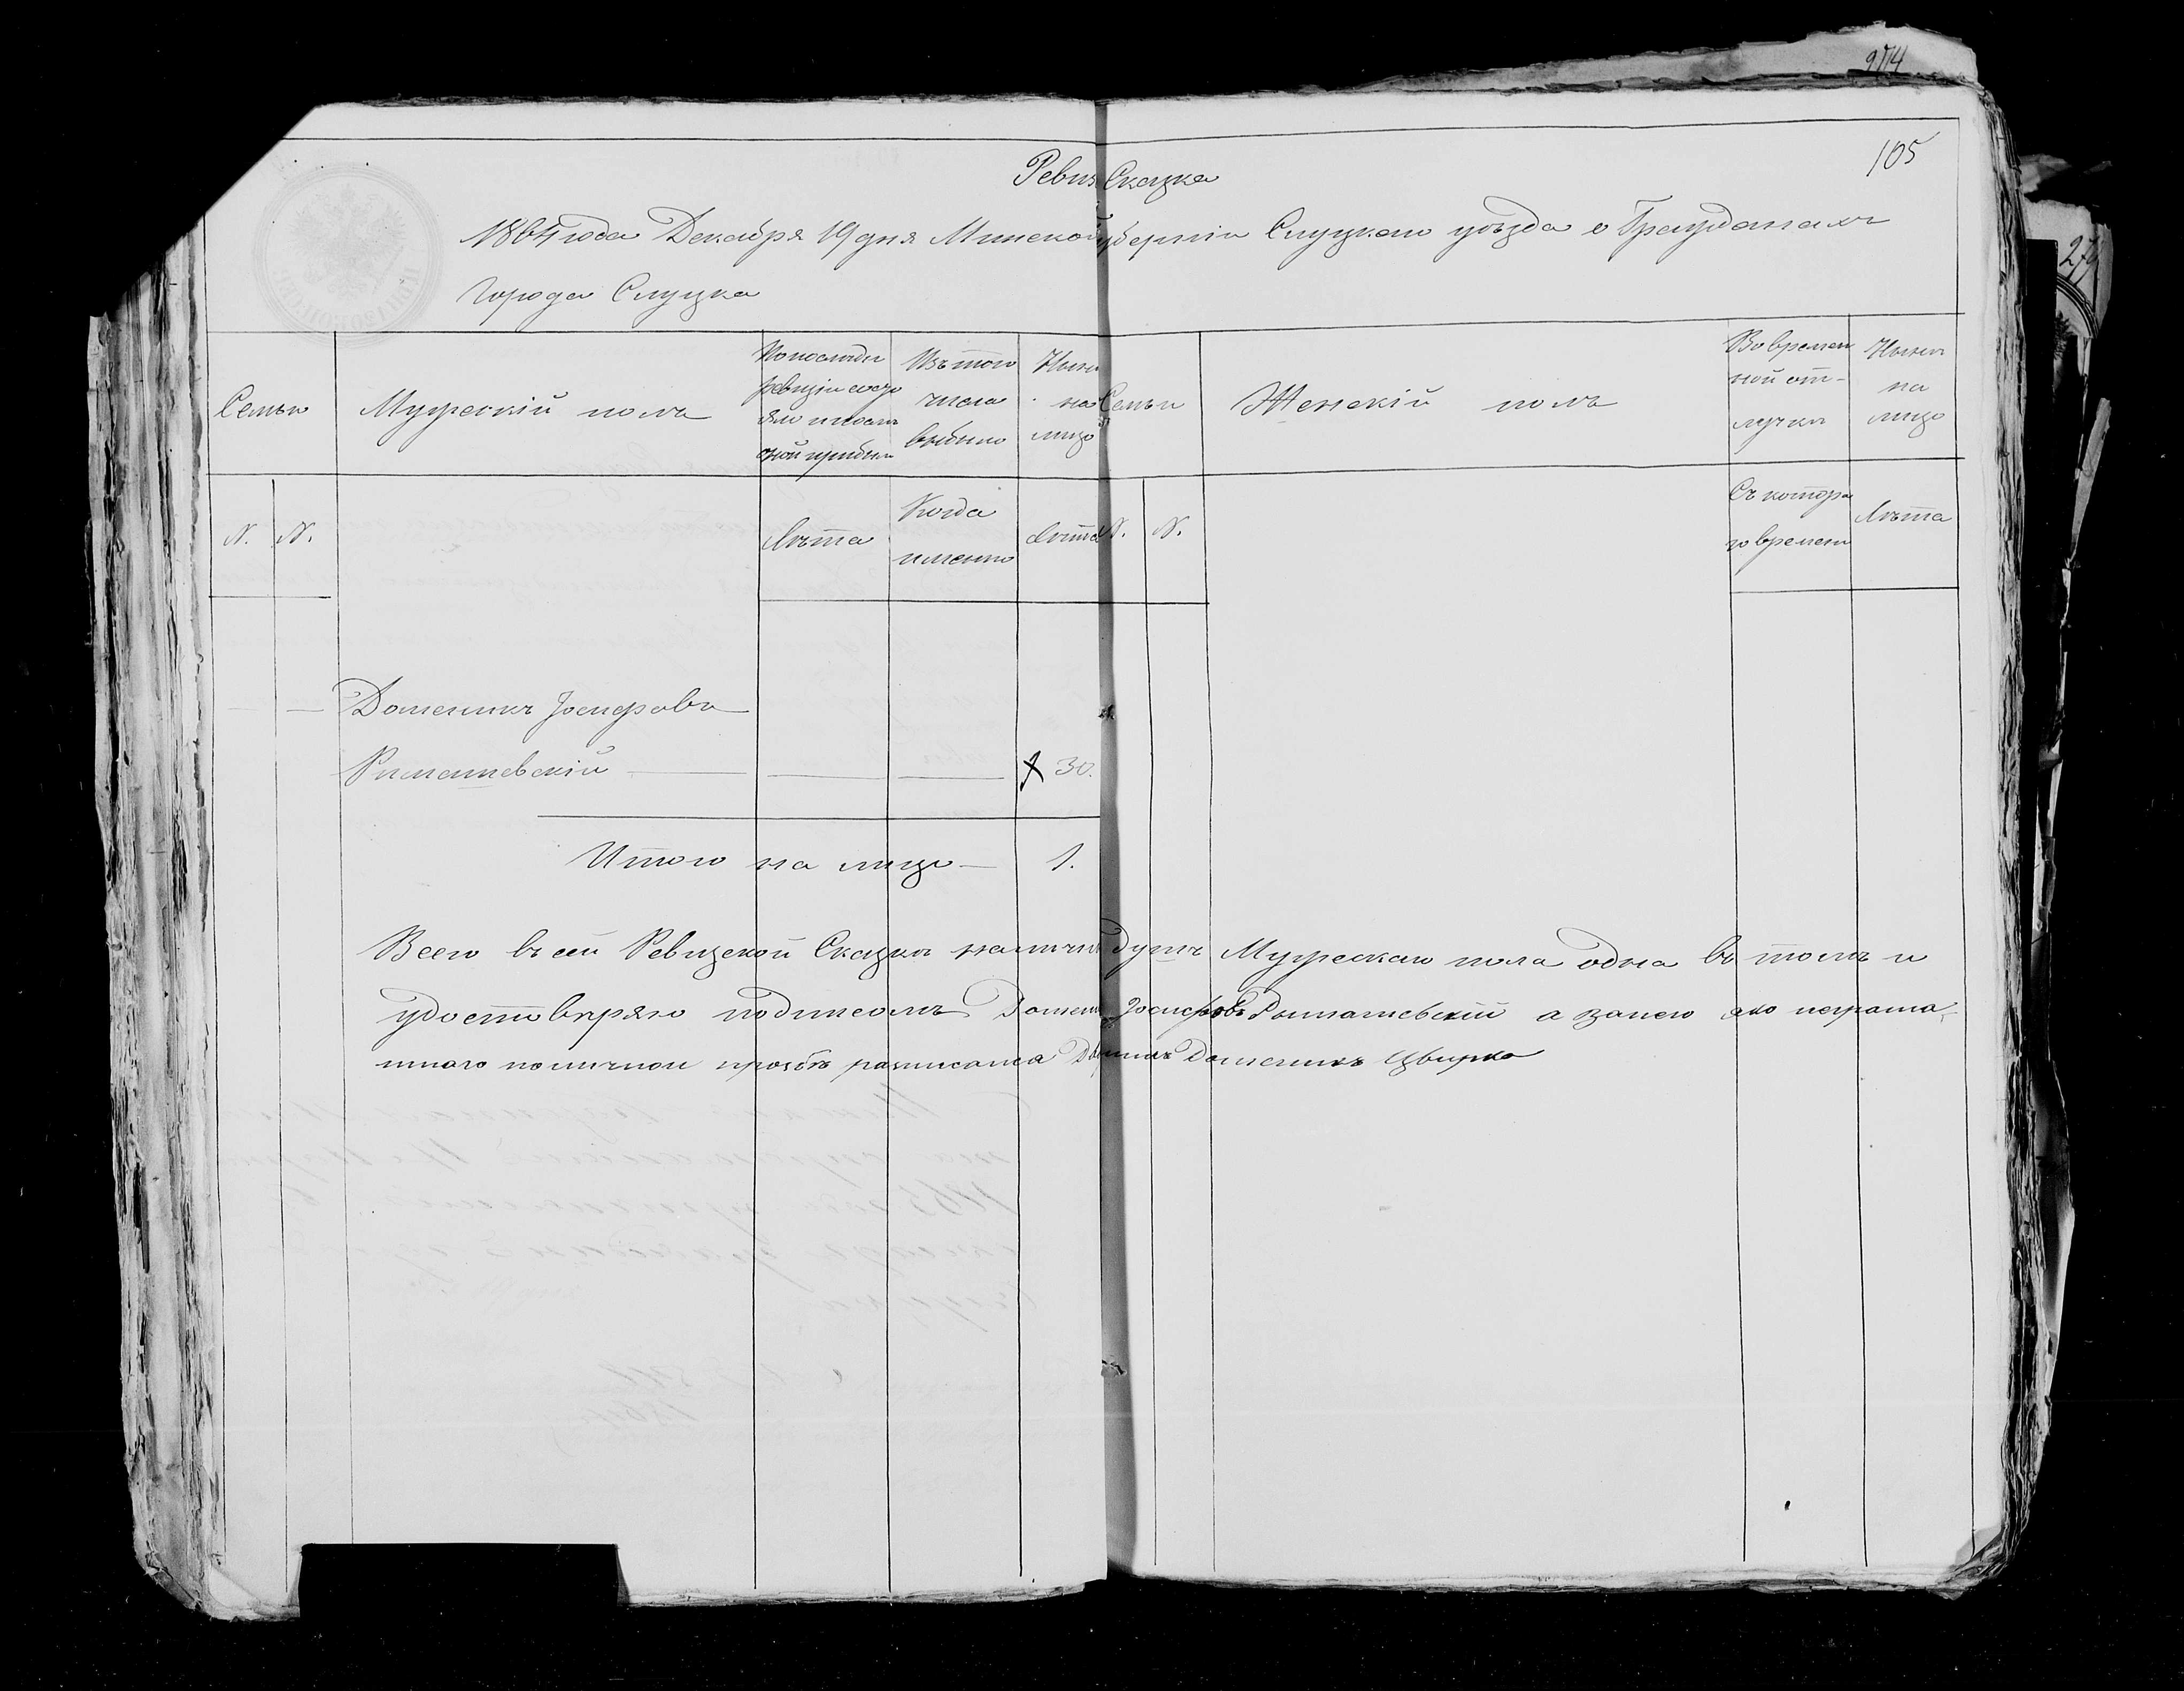 974
105
Ревиз Сказка
1864 года Декабря 19 дня Минской губернiи Слуцкаго уѣзда о Гражданахъ
Города Слуцка
Семьи
Мужескiй полъ
По послѣдн ревизiи состо яло и послѣ оной прибыл
Изъ того числа выбыло
Нынѣ на лицо
Семьи
Женскiй полъ
Во времен ной от- лучки
Нынѣ на лицо
N. N.
Лѣта
Когда именно
Лѣта
N. N.
Съ котора го времени
Лѣта
Доменикъ Iосифовъ
Рымашевскiй 30.
Итого на лицо — 1.
Всего въ сей Ревизской Сказки наличн душъ Мужескаго пола одна въ томъ и
удостовѣряю подписомъ Домени Iосифовъ Рымашевскiй а занего яко неграма-
тнаго поличной прозбѣ расписался Доменикъ Цвирко